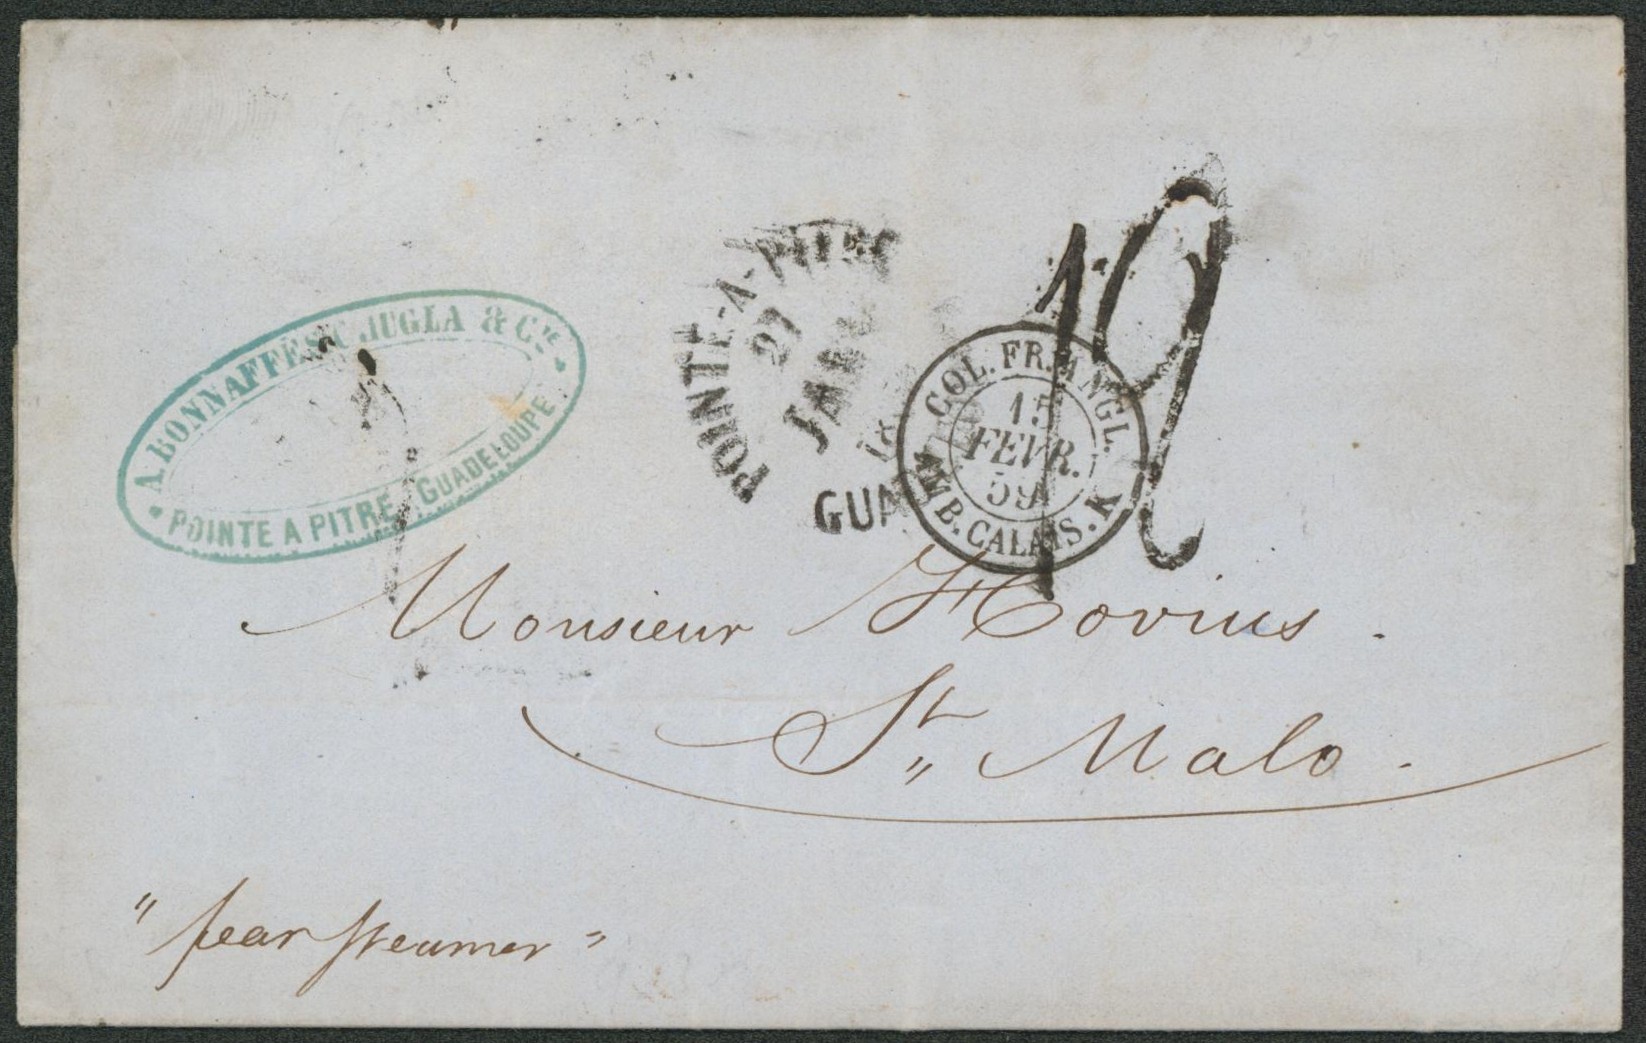 A. BONNAFFES C. JUGLA & Cie
POINTE A PITRE, GUADELOUPE
POINTE-A-PITRE
27
JAN
GUA
COL. FR. ANGL.
15
FEVR.
59
AMB. CALAIS. K
12
Monsieur Hovius.
St Malo.
"pear Steamer"